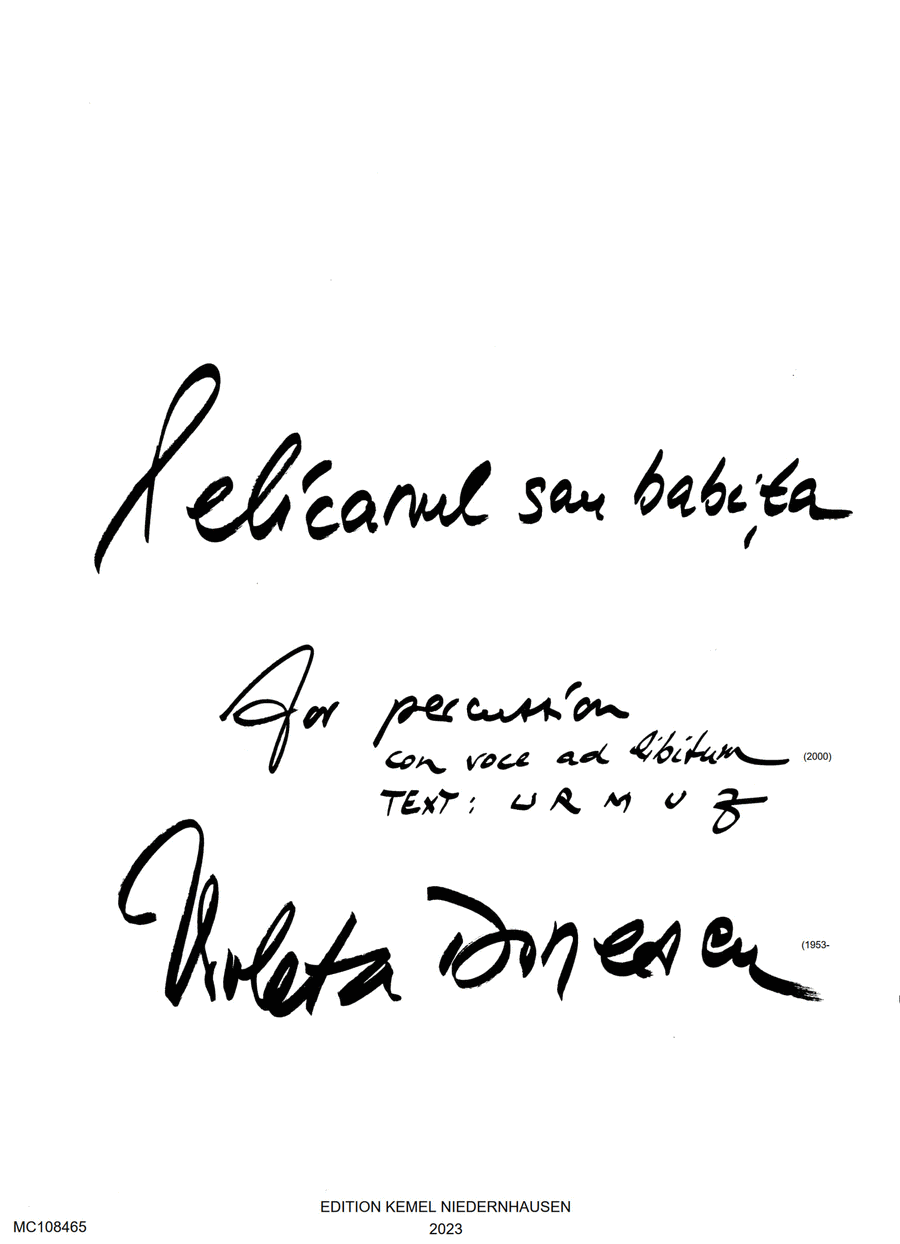 Pelicanul sau babița
for percussion
con voce ad libitum (2000)
TEXT: URMUZ
Violeta Dinescu (1953-
EDITION KEMEL NIEDERNHAUSEN
MC108465 2023